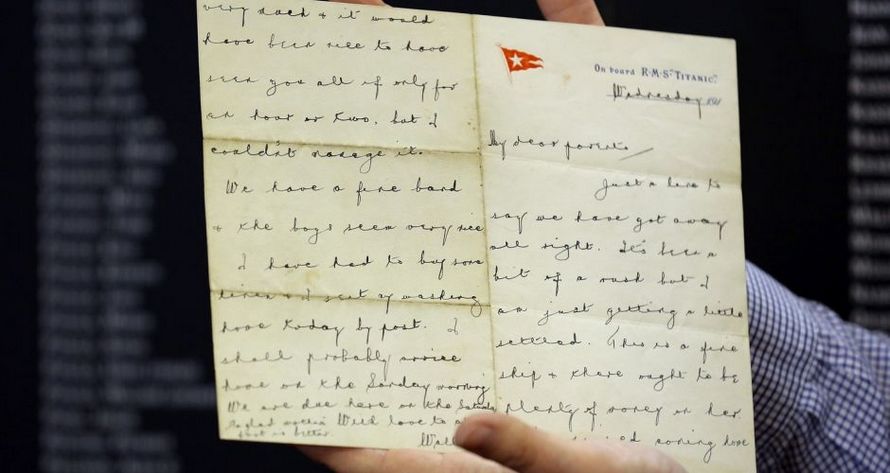 On board R.M.S. "TITANIC."
Wednesday 191
My dear parents
Just a line to
say we have got away
all right. It's been a
bit of a rush but I
am just getting a little
settled. This is a fine
ship & there ought to be
plenty of money on her
coming home
very much & it would
have been nice to have
seen you all if only for
an hour or two, but I
couldn't manage it.
We have a fine band
& the boys seem very nice
I have had to buy some
linen & I sent my washing
home today by post. I
shall probably arrive
home on the Sunday morning
We are due here on the Saturday
glad mother's With love to
foot is better.